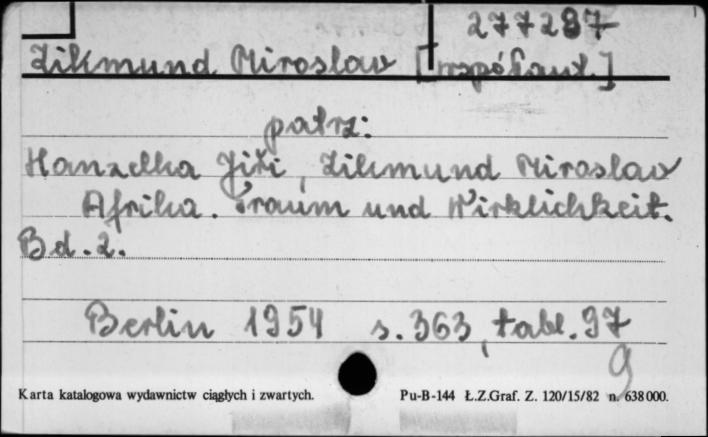 277287
Zikmund Miroslav [współaut.]
patrz:
Hanzelka Jiři, Zikmund Miroslav
Afrika. Traum und Wirklichkeit.
Bd. 2.
Berlin 1954 s. 363, tabl. 97
g
Karta katalogowa wydawnictw ciągłych i zwartych. Pu-B-144 Ł.Z.Graf. Z. 120/15/82 n. 638000.